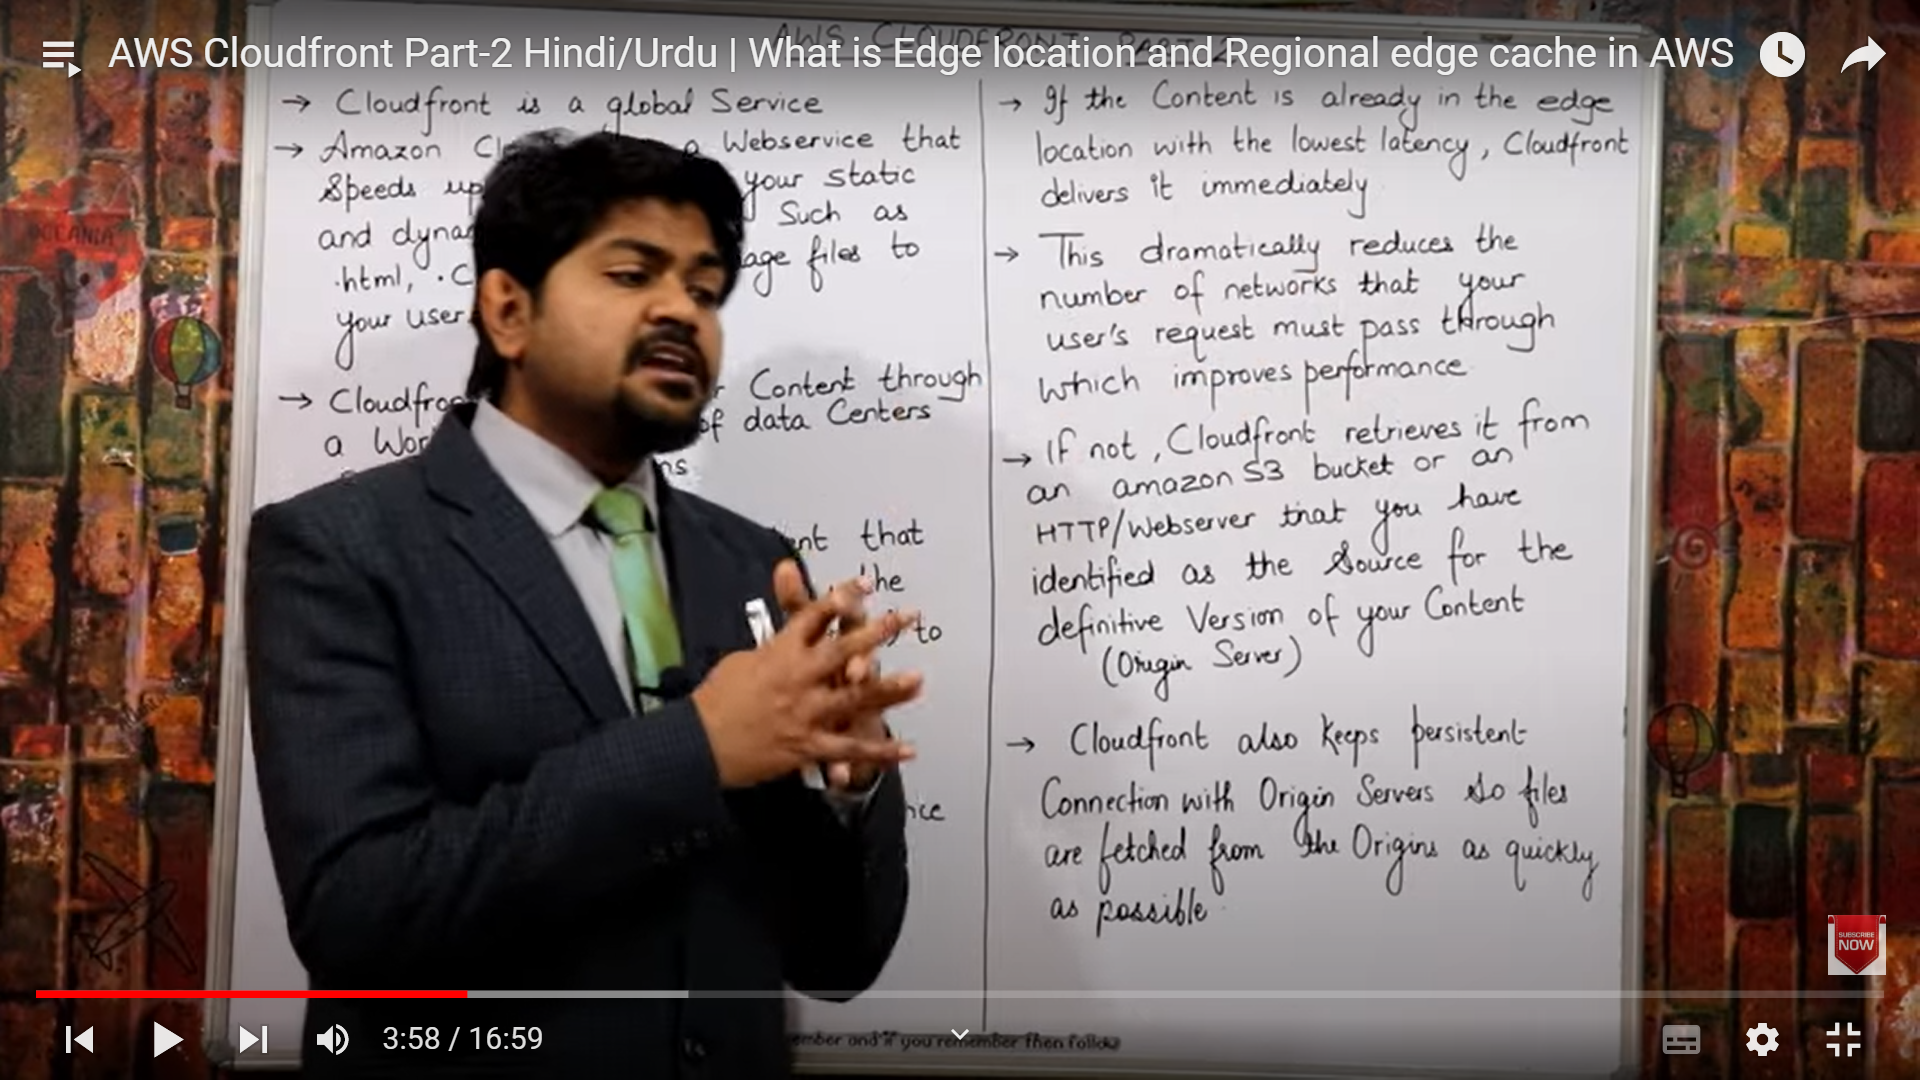 AWS Cloudfront Part-2 Hindi/Urdu | What is Edge location and Regional edge cache in AWS
AWS CLOUDFRONT PART-2
→ Cloudfront is a global Service
→ Amazon a Webservice that
Speeds up your static
and Such as
.html, files to
your user
→ Content through
a of data Centers
that
the
to
→ If the Content is already in the edge
location with the lowest latency, Cloudfront
delivers it immediately
→ This dramatically reduces the
number of networks that your
user's request must pass through
which improves performance
→ If not, Cloudfront retrieves it from
an amazon S3 bucket or an
HTTP/Webserver that you have
identified as the Source for the
definitive Version of your Content
(Origin Server)
→ Cloudfront also keeps persistent
Connection with Origin Servers so files
are fetched from the Origins as quickly
as possible
and if you remember then follow
OCEANIA
SUBSCRIBE
NOW
3:58 / 16:59